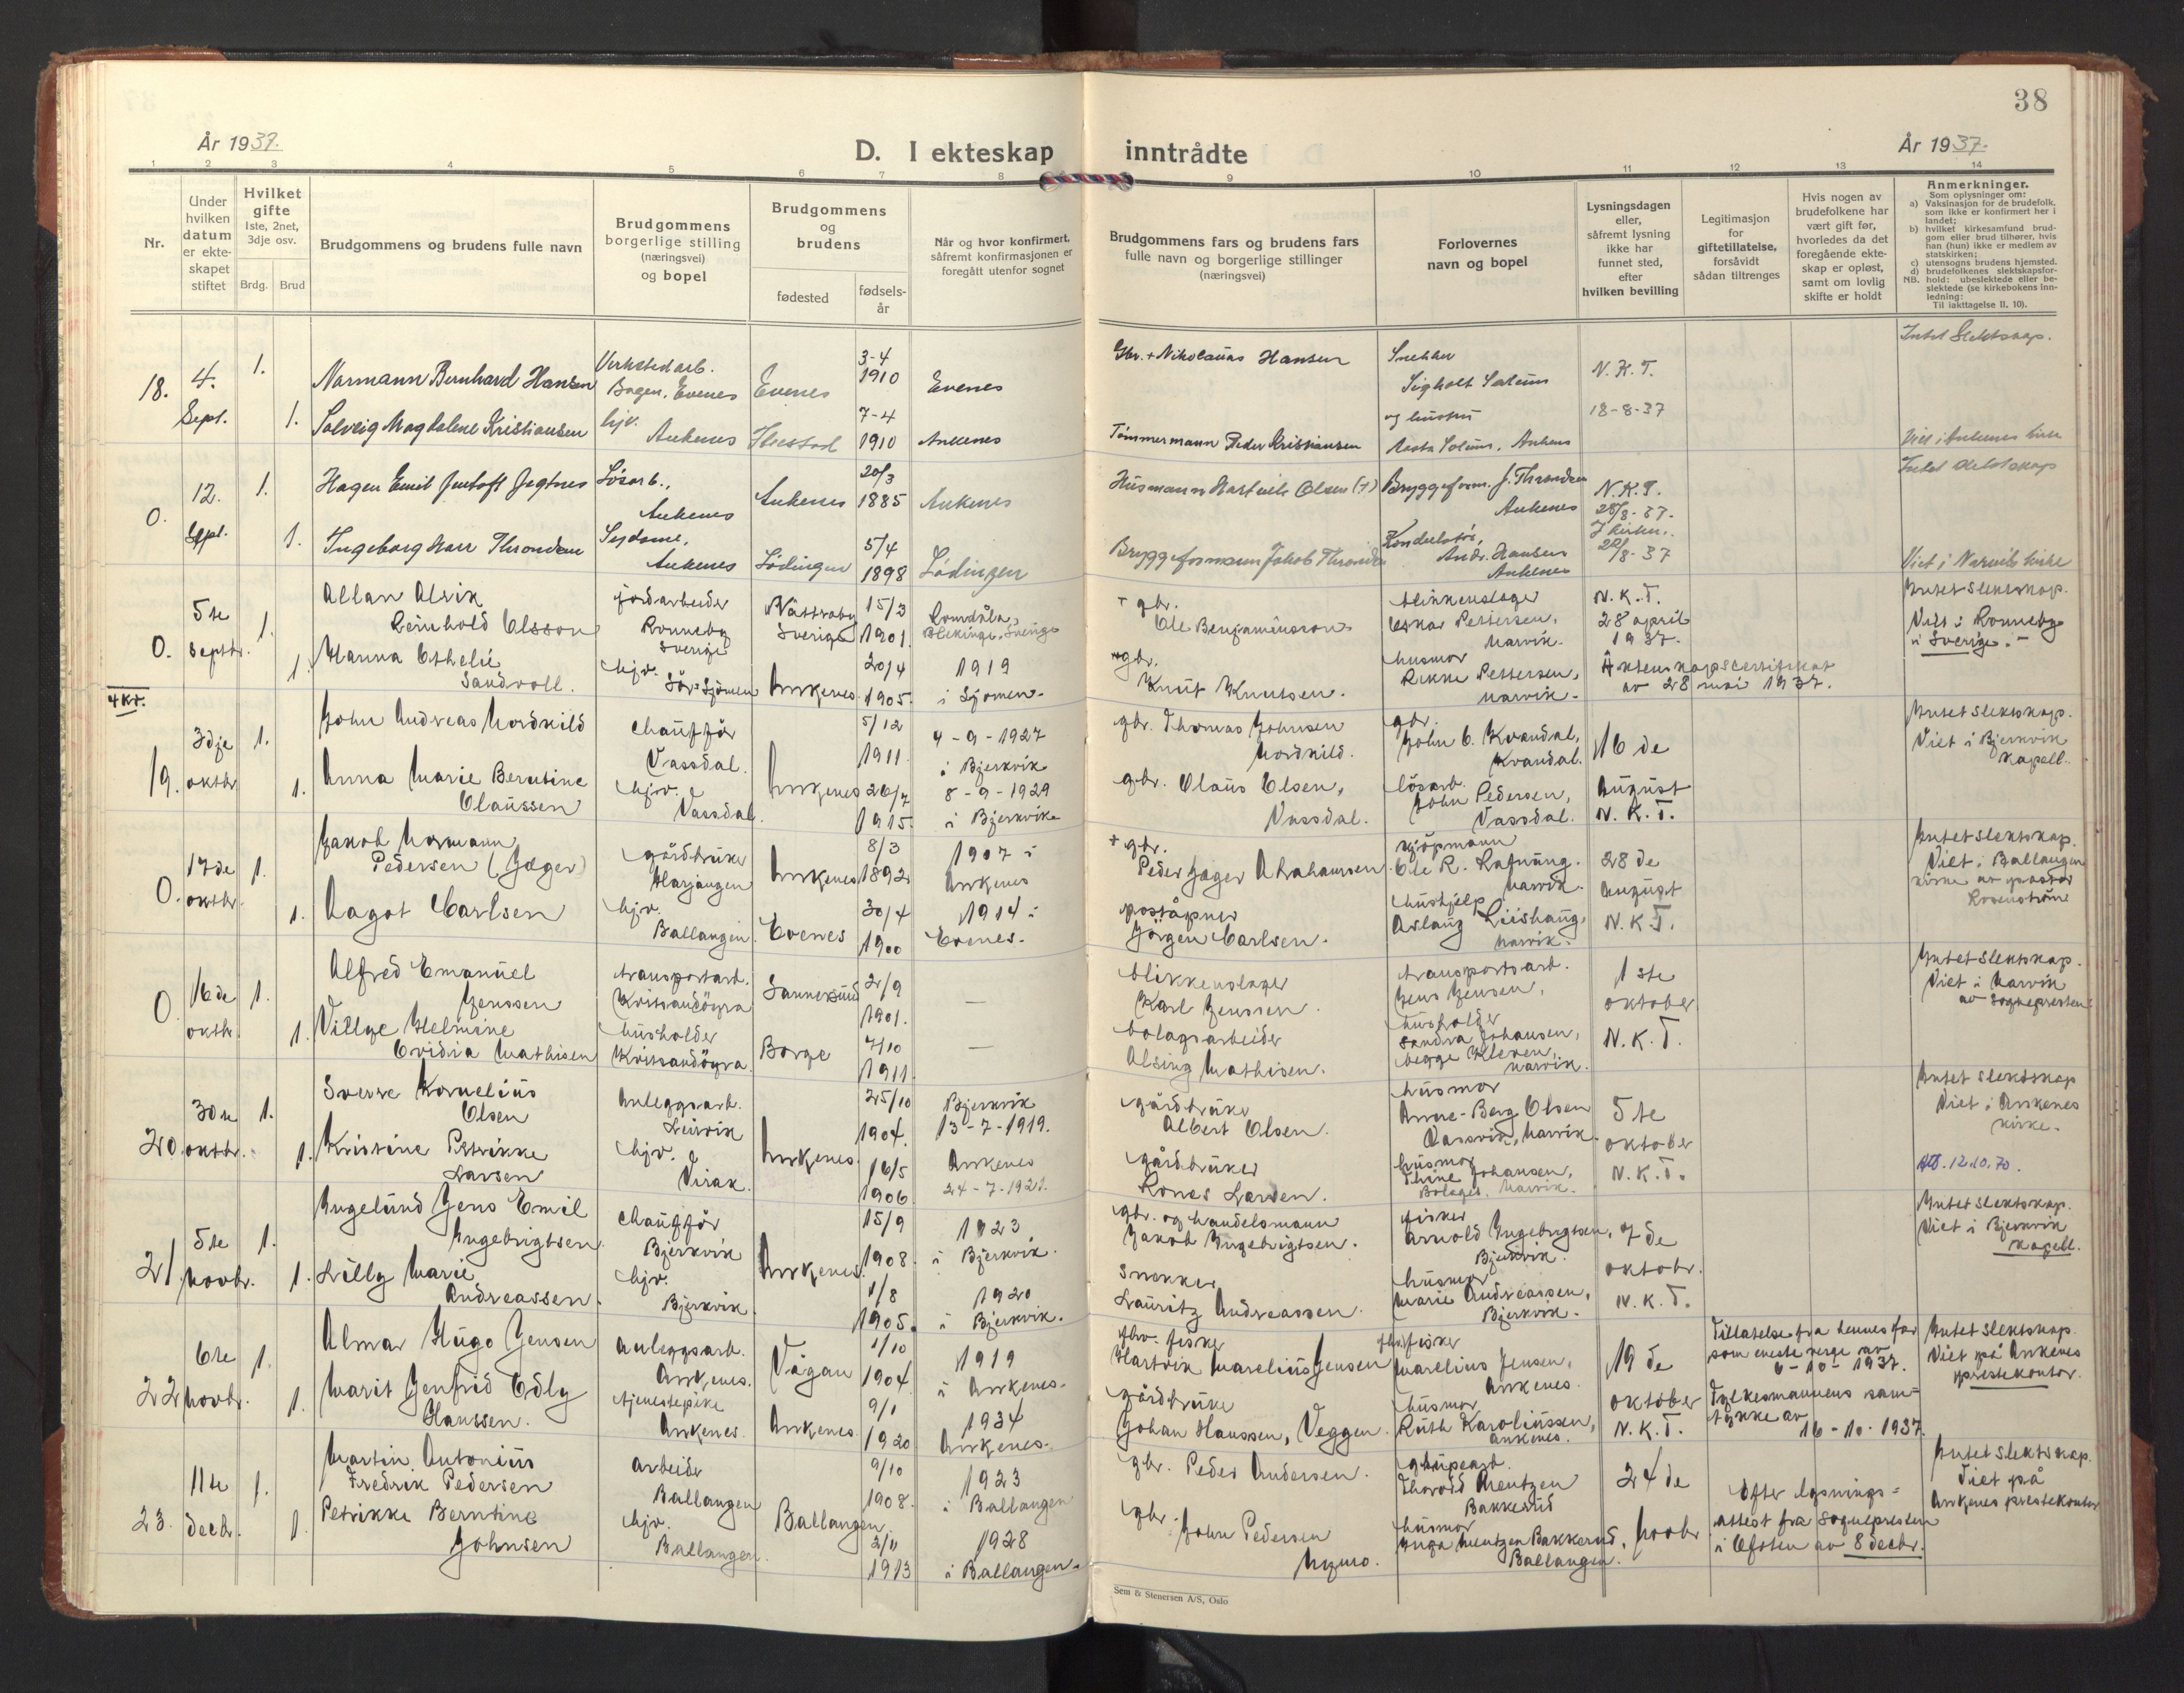 38
År 1937.
D. I ekteskap inntrådte
År 1937.
1 2 3 4 5 6 7 8 9 10 11 12 13 14
Nr.
Under hvilken datum er ekteskapet stiftet
Hvilket gifte
1ste, 2net, 3dje osv.
Brdg. Brud
Brudgommens og brudens fulle navn
Brudgommens borgerlige stilling (næringsvei) og bopel
Brudgommens og brudens
fødested
fødselsår
Når og hvor konfirmert, såfremt konfirmasjonen er foregått utenfor sognet
Brudgommens fars og brudens fars fulle navn og borgerlige stillinger (næringsvei)
Forlovernes navn og bopel
Lysningsdagen eller, såfremt lysning ikke har funnet sted, efter hvilken bevilling
Legitimasjon for giftetillatelse, forsåvidt sådan tiltrenges
Hvis nogen av brudefolkene har vært gift før, hvorledes da det foregående ekteskap er opløst, samt om lovlig skifte er holdt
Anmerkninger.
Som oplysninger om:
a) Vaksinasjon for de brudefolk, som ikke er konfirmert her i landet;
b) hvilket kirkesamfund brudgom eller brud tilhører, hvis han (hun) ikke er medlem av statskirken;
c) utensogns brudens hjemsted.
d) brudefolkenes slektskapsforhold: ubeslektede eller beslektede (se kirkebokens innledning:
NB. Til iakttagelse II, 10).
18. 4. Sept. 1. Normann Bernhard Hansen Verkstedarb. Bogen, Evenes Evenes 3-4 1910 Evenes Gbr. + Nikolaus Hansen Snekker Sigholt Solum N.K.T. Intet Slektskap.
1. Solveig Magdalene Kristiansen hjv. Ankenes Ibestad 7-4 1910 Ankenes Tømmermann Peder Kristiansen og hustru Solum, Ankenes 18-8-37 Viet i Ankenes kirke
0. 12. Sept. 1. Hagen Emil Jentoft Jegtnes Løsarb., Ankenes Ankenes 20/3 1885 Ankenes Husmann Hartvik Olsen (+) Bryggeform. J. Throndsen Ankenes N.K.T. 28/8-37. Intet slektskap
1. Ingeborg Throndsen Sydame, Ankenes Lødingen 5/4 1898 Lødingen Bryggeformann Jakob Throndsen Andr. Hansen Ankenes 8-37 Viet i Narvik kirke
0. 5te septbr. 1. Allan Alrik Reinhold Olsson jordarbeider Ronneby Sverige Nättraby Sverige 15/3 1901. Blekinge. Sverige + gbr. Ole Benjaminsson blikkenslager Oskar Pettersen, Narvik. N.K.T. 28 april 1937. Intet Slektskap. Viet i Ronneby i Sverige. -
1. Hanna Othelie Sandvoll. hjv. Sør-Sjømen Ankenes 20/4 1905. 1919 i Sjømen. + gbr. Knut Knutsen. husmor Rikke Pettersen, Narvik. Äktenskapscertifikat av 28 mai 1937.
4 kr.
19. 3dje oktbr. 1. John Andreas Nordkild Chauffør Vassdal. Ankenes 5/12 1911. 4-9-1927 i Bjerkvik gbr. Thomas Johnsen Nordkild. gbr. John C. Kvandal, Kvandal. 16 de August N.K.T. Intet Slektskap. Viet i Bjerkvik Kapell.
1. Anna Marie Berntine Olaussen hjv. Vassdal. 26/7 1915. 8-9-1929 i Bjerkvik gbr. Olaus Olsen, Vassdal. løsarb. John Pedersen, Vassdal.
0. 17de oktbr. 1. Jakob Normann Pedersen (Jæger) gårdbruker Harjangen Ankenes 8/3 1892 1907 i Ankenes + gbr. Peder Jæger Abrahamsen kjøpmann Ole R. Narvik. 28 de August N.K.T. Intet Slektskap. Viet i Ballangen kirke av pastor Rosenstrøm
1. Aagot Carlsen hjv. Ballangen. Evenes 30/4 1900 1914 i Evenes. poståpner Jørgen Carlsen. hushjelp Aslaug Narvik.
0. 16de oktbr. 1. Alfred Emanuel Jenssen transportarb. Kvitsandøyra Sannesund 2/9 1901. — blikkenslager Karl Jenssen. transportarb. Jens Jensen, 1ste oktober N.K.T. Intet Slektskap. Viet i Narvik av sognepresten
1. Villye Helmine Ovidia Mathisen husholder Kvitsandøyra. Borge 7/10 1911. — bolagsarbeider Alsing Mathisen. husholder Sandra Johansen, begge Kleven, Narvik.
20. 3die oktbr. 1. Sverre Kornelius Olsen Anleggsarb. Leirvik Ankenes. 25/10 1904. Bjerkvik 13-7-1919. gårdbruker Albert Olsen. husmor Anne-Berg Olsen Vassvik, Narvik. 5te oktober N.K.T. Intet Slektskap Viet i Ankenes kirke.
1. Kristine Petrikke Larsen hjv. Virak. 16/5 1906 Ankenes 24-7-1921. gårdbruker Konas Larsen. husmor Thine Johansen, Bolaget, Narvik. 12.10.70.
21. 5te novbr. 1. Ingelund Jens Emil Ingebrigtsen. Chauffør Bjerkvik Ankenes. 15/9 1908. 1923 i Bjerkvik. gbr. og handelsmann Jakob Ingebrigtsen. fisker Arnold Ingebrigtsen, Bjerkvik. 7de oktobr. N.K.T. Intet Slektskap. Viet i Bjerkvik Kapell.
1. Lilly Marie Andreassen. hjv. Bjerkvik. 1/8 1905. 1920 i Bjerkvik. Snekker Lauritz Andreassen. husmor Marie Andreassen, Bjerkvik.
22 6te novbr. 1. Almar Hugo Jensen anleggsarb. Ankenes. Vågan 1/10 1904 1919 i Ankenes. fhv. fisker Hartvik Marelius Jensen fhv. fisker Marelius Jensen, Ankenes. 19 de oktober N.K.T. Tillatelse fra hennes far som eneste verge av 6-10-1937. Intet Slektskap. Viet på Ankenes prestekontor.
1. Marit Jenfrid Edly Hanssen. tjenestepike Ankenes. Ankenes 9/1 1920 1934 Ankenes. gårdbruker Johan Hanssen, Veggen. husmor Ruth Karolinssen, Ankenes. Fylkesmannens samtykke av 16-10-1937.
23. 11te decbr. 1. Martin Antonius Fredrik Pedersen arbeider Ballangen Ballangen 9/10 1908. 1923 i Ballangen gbr. Peder Andersen. grubearb. Thorodd Mentzen Bakkerud 24 de Novbr Efter lysningsattest fra Sognepresten i Ofoten av 8 decbr. Intet Slektskap. Viet på Ankenes prestekontor
1. Petrikke Berntine Johnsen hjv. Ballangen. 2/11 1913 1928 i Ballangen. gbr. John Pedersen husmor Inga Mentzen Bakkerud, Ballangen.
Sem & Stenersen A/S, Oslo